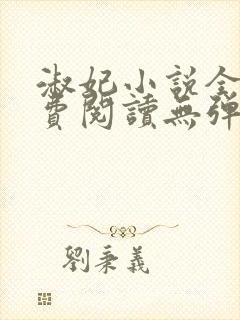 淑妃小說全
費閱讀無彈
劉秉義